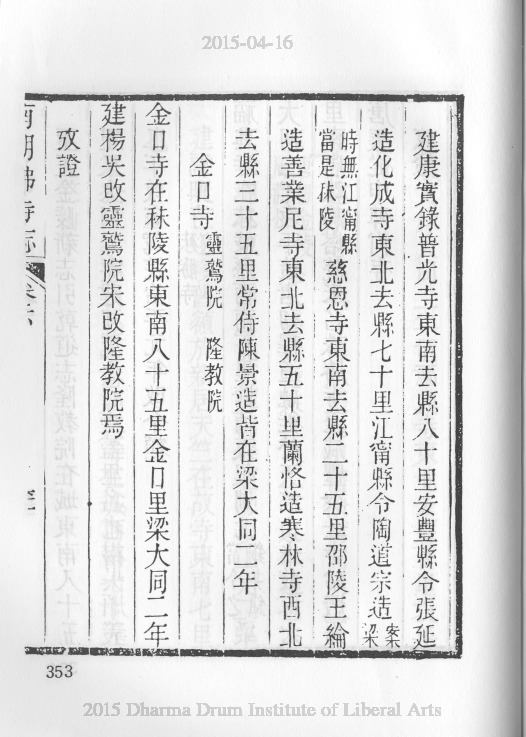 2015-04-16
建康實錄普光寺東南去縣八十里安豐縣令張延
造化成寺東北去縣七十里江甯縣令陶道宗造案梁
時無江甯縣當是秣陵慈恩寺東南去縣二十五里邵陵王綸
造善業尼寺東北去縣五十里蘭恪造寒林寺西北
去縣三十五里常侍陳景造皆在梁大同二年
金口寺靈鷲院 隆教院
金口寺在秣陵縣東南八十五里金口里梁大同二年
建楊吳改靈鷲院宋改隆教院焉
攷證
南朝佛寺志 卷六
353
2015 Dharma Drum Institute of Liberal Arts